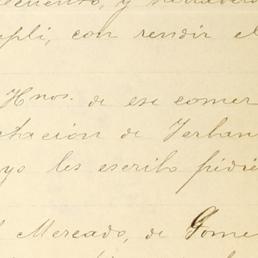 cuento, y
mpli, con rendir el
Hnos. de ese comer
tación de Yerban
yo les escribo pidie
l Mercado, de Gome